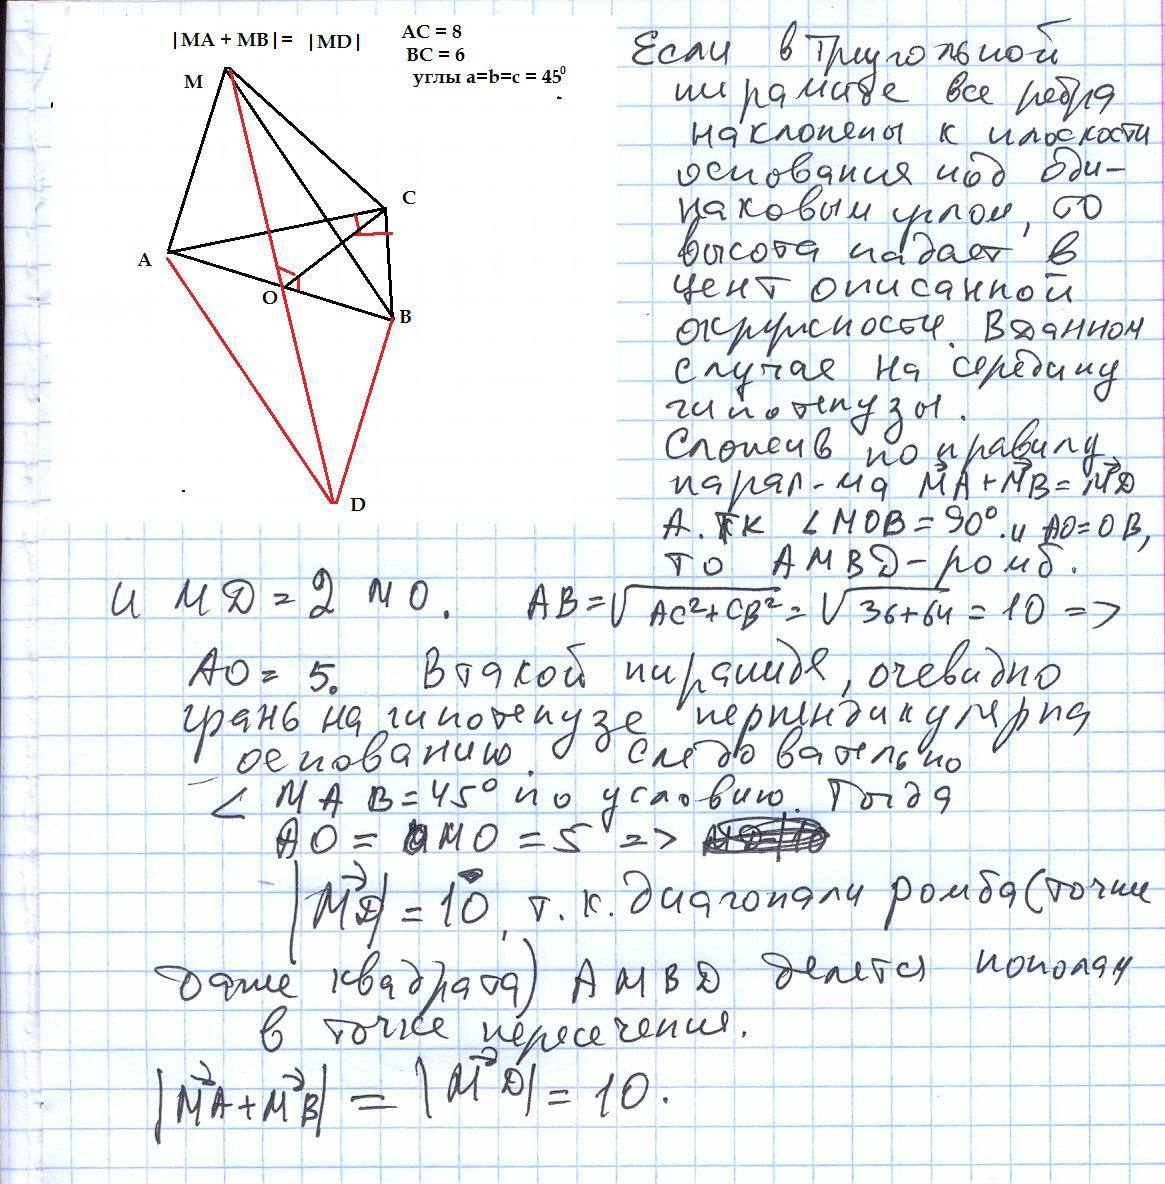 |MA + MB|= |MD|
AC = 8
BC = 6
углы a=b=c = 45⁰
M
C
A
O
B
D
Если в треугольной
пирамиде все ребра
наклонены к плоскости
основания под оди-
наковым углом, то
высота падает в
цент описанной
окружности. В данном
случае на середину
гипотенузы.
Сложив по правилу
парал-ма MA+MB=MD
А. тк ∠MOB=90°. и AO=OB,
то AMBD-ромб.
и MD=2MO. AB=√AC²+CB²=√36+64=10=>
AO=5. В такой пирамиде, очевидно
грань на гипотенузе перпендикулярна
основанию. Следовательно
∠MAB=45° по условию. Тогда
AO=MO=5=>
|MD|=10, т.к. диагонали ромба(точнее
даже квадрата) AMBD делятся пополам
в точке пересечения.
|MA+MB|=|MD|=10.